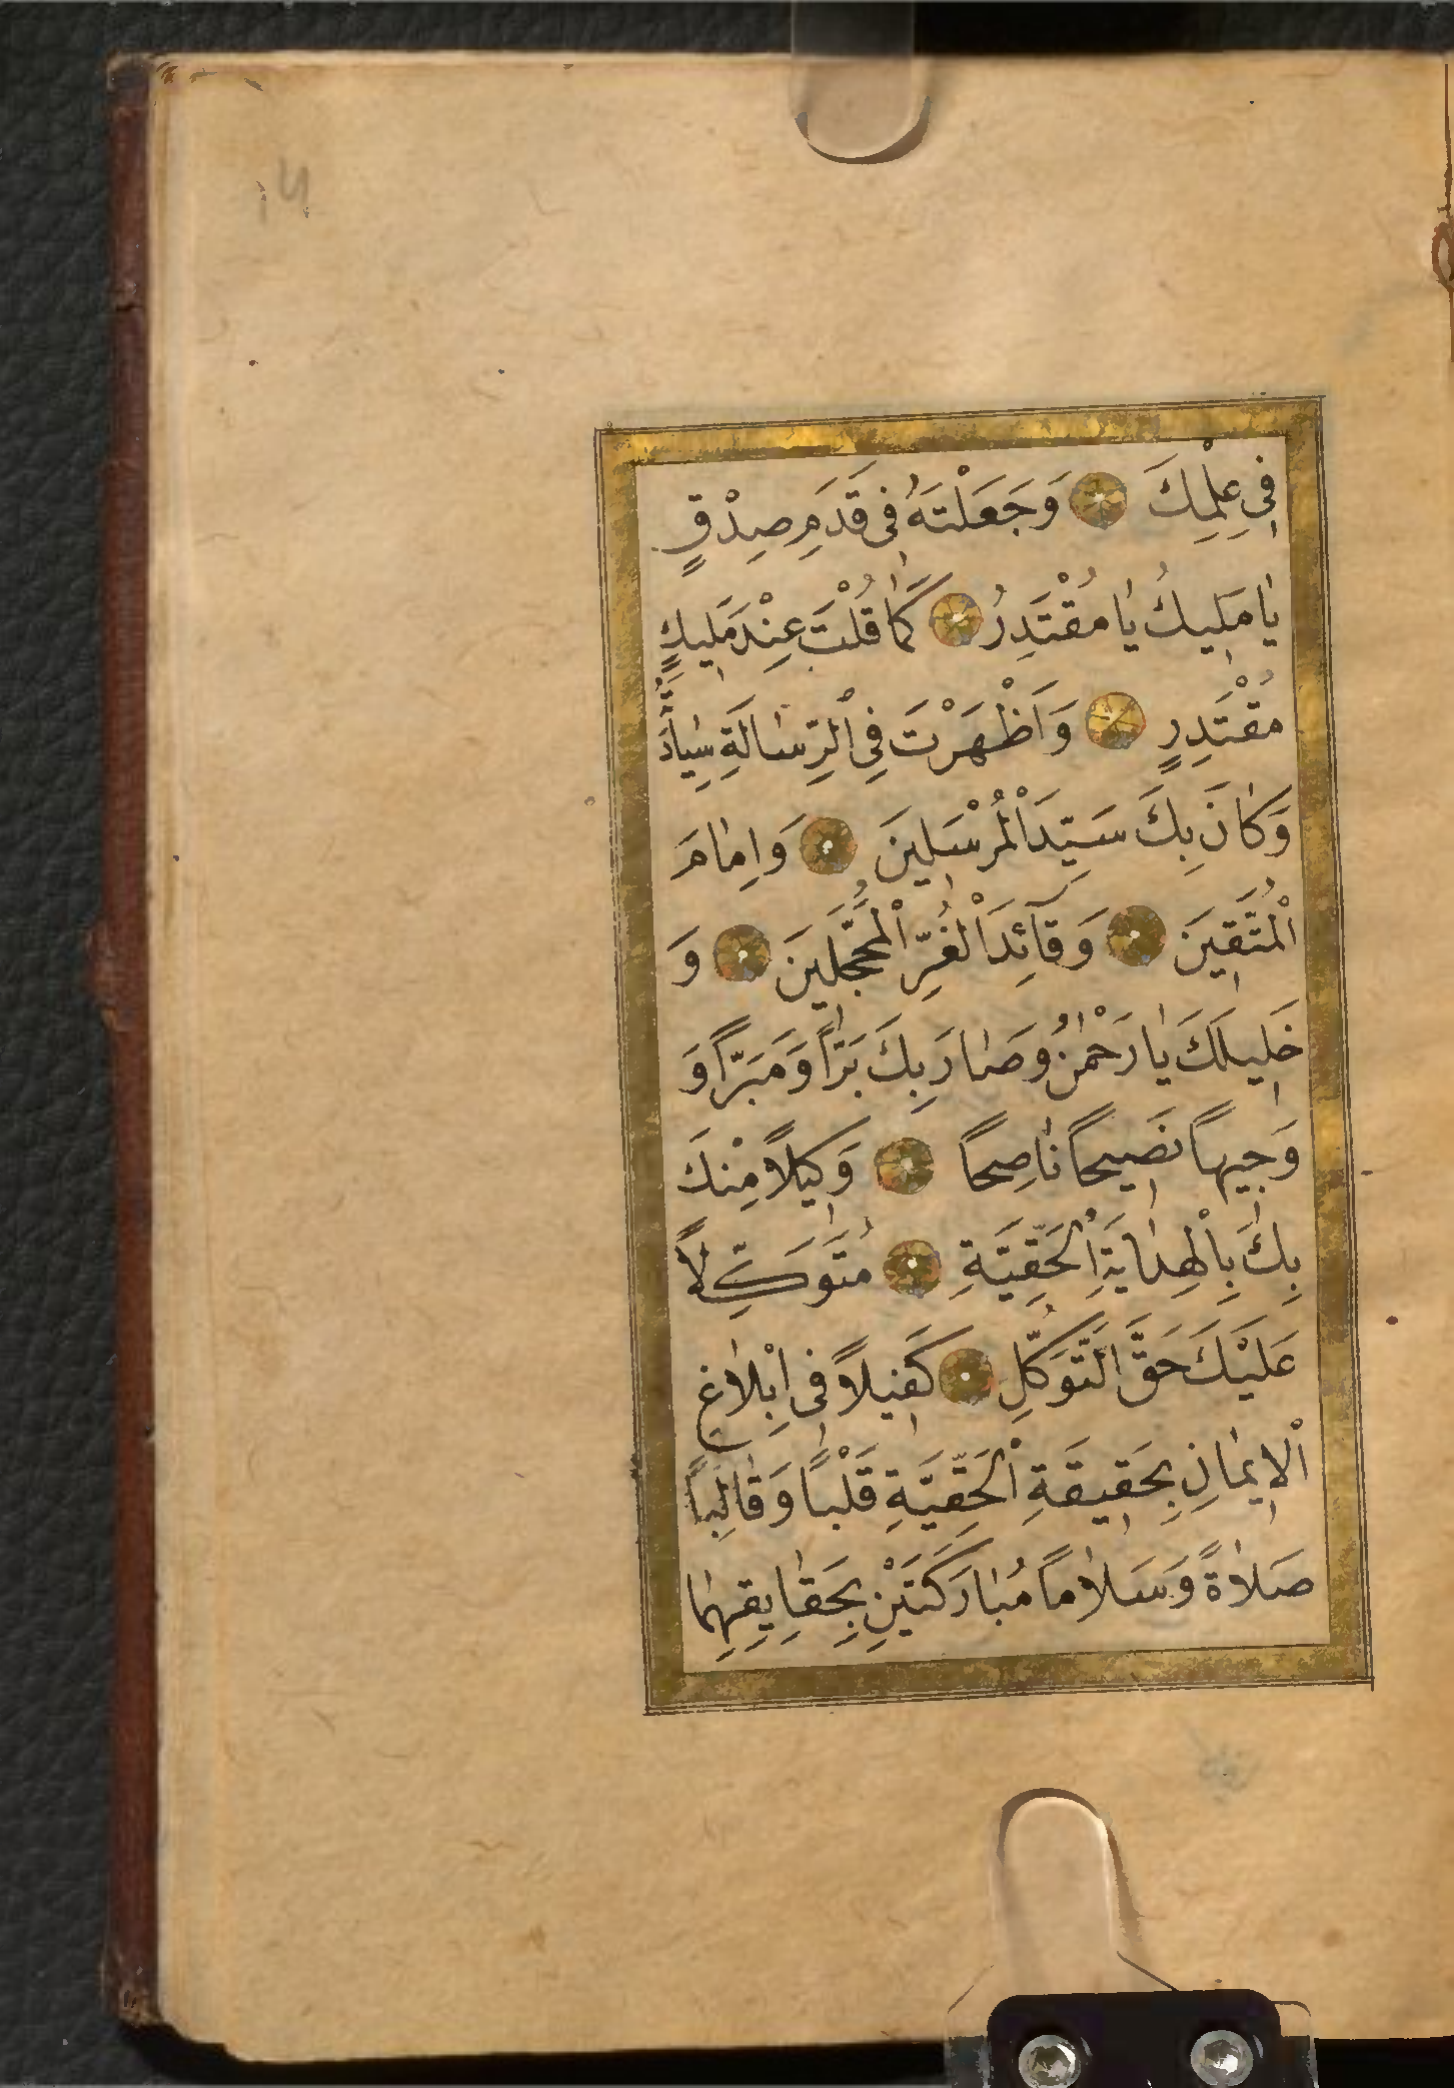 فِي عِلْمِكَ ۞ وَجَعَلْتَهُ فِي قَدَمِ صِدْقٍ
يَا مَلِيكُ يَا مُقْتَدِرُ ۞ كَمَا قُلْتَ عِنْدَ مَلِيكٍ
مُقْتَدِرٍ ۞ وَاَظْهَرْتَ فِي الْرِّسَالَةِ سِيَادَتَهُ
وَكَانَ بِكَ سَيِّدَ الْمُرْسَلِينَ ۞ وَاِمَامَ
الْمُتَّقِينَ ۞ وَقَآئِدَ الْغُرِّ الْمُحَجَّلِينَ ۞ وَ
خَلِيلَكَ يَا رَحْمٰنُ وَصَارَ بِكَ بَرّاً وَمَبَرّاً وَ
وَجِيهاً نَصِيحاً نَاصِحاً ۞ وَكِيلاً مِنْكَ
بِكَ بِالْهِدَايَةِ الْحَقِّيَّةِ ۞ مُتَوَكِّلاً
عَلَيْكَ حَقَّ التَّوَكُّلِ ۞ كَفِيلاً فِي اِبْلاَغِ
الْاِيمَانِ بِحَقِيقَةِ الْحَقِّيَّةِ قَلْباً وَقَالِباً
صَلاَةً وَسَلاَماً مُبَارَكَتَيْنِ بِحَقَايِقِهِمَا